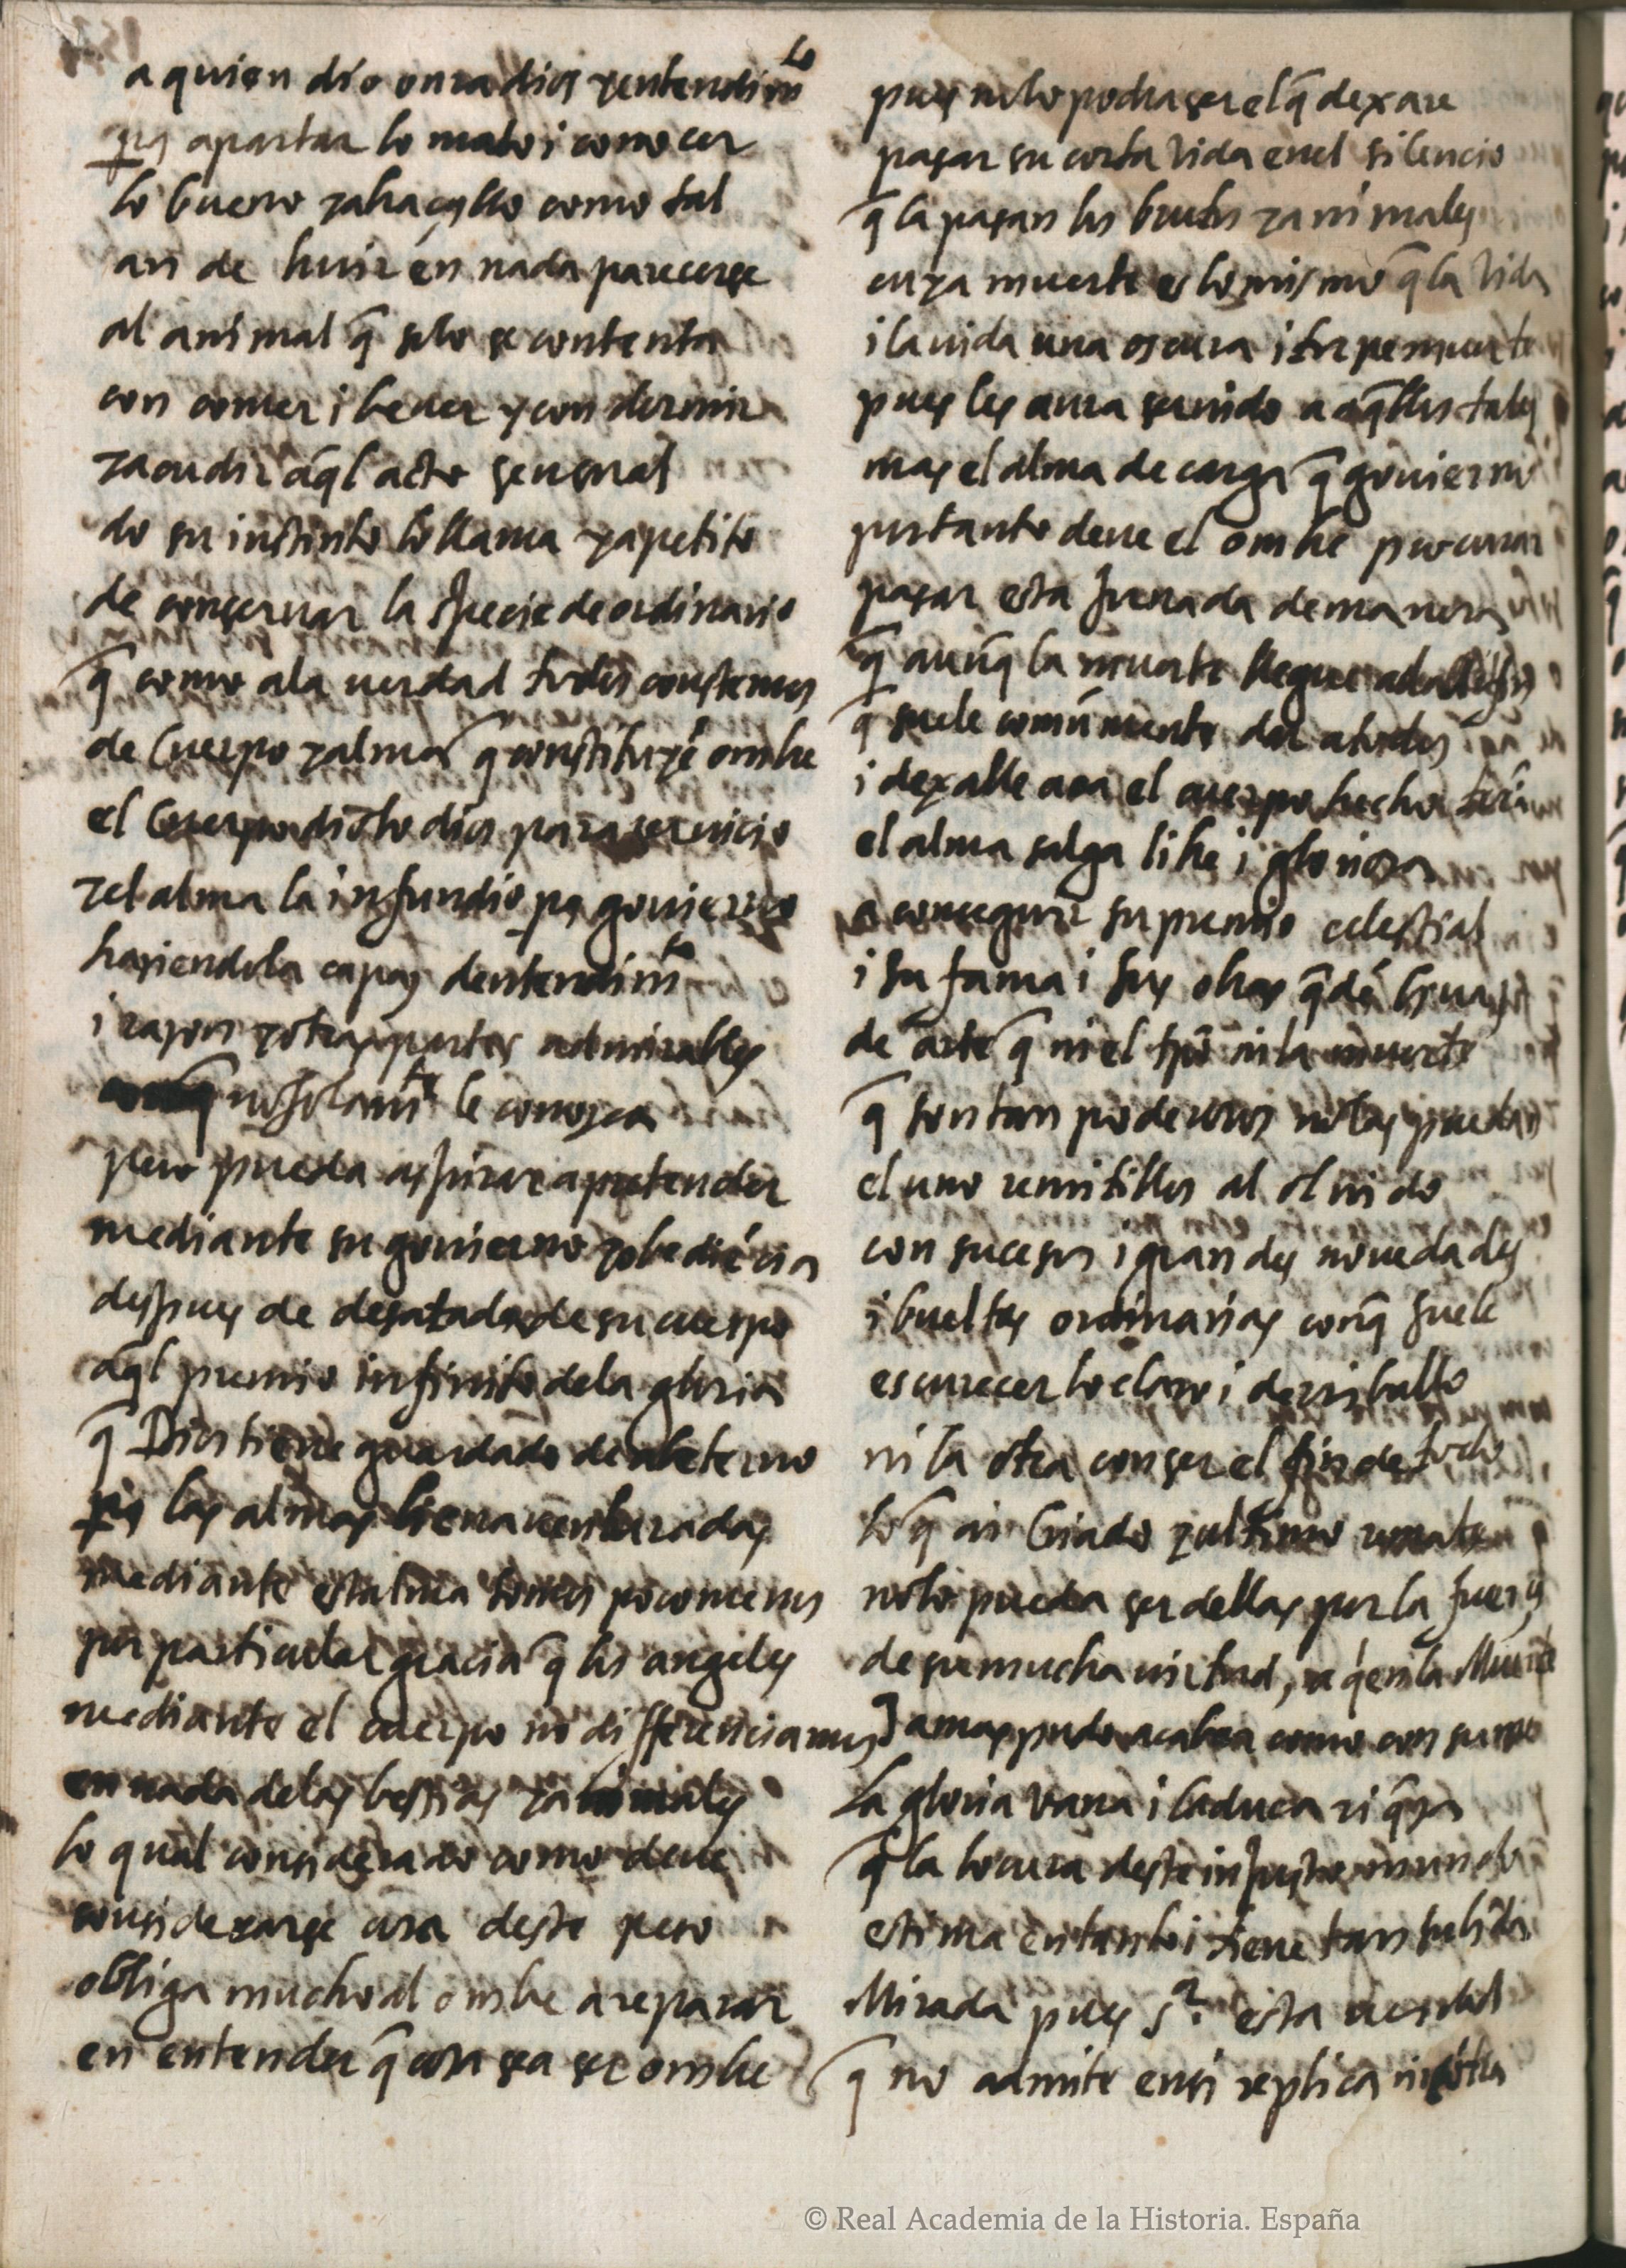 a quien dio onra dios y entendimto
pa apartar lo malo i conocer
lo bueno y abraçallo como tal
an de huir en nada parecerse
al animal q̄ solo se contenta
con comer i bever y con dormir
y acudir aq̄l acto sensual
do su instinto lo llama y apetito
de conservar la specie de ordinario
q̄ como a la verdad todos constemos
de Cuerpo y alma q̄ constituyē ombre
el Cuerpo diolo dios para servicio
y el alma la infundio pa govierno
haziendola capaz dentendimto
i razon y otras partes admirables
no solamte le conozca
pero pueda aspirar a pretender
mediante su govierno y obediēcia
despues de desatada de su cuerpo
aq̄l premio infinito de la gloria
q̄ Dios tiene guardado de abeterno
pa las almas bienaventuradas
mediante esta alma somos poco menos
por particular gracia q̄ los angeles
mediante el cuerpo no differenciamos
en nada de las bestias y animales
lo qual considerado como deve
considerarse cosa deste peso
obliga mucho al ombre a reparar
en entender q̄ cosa sea ser ombre
pues no lo podra ser el q̄ dexare
pasar su corta vida en el silencio
q̄ la pasan los brutos y animales
cuya muerte es lo mismo q̄ la vida
i la vida una oscura i torpe muerte
pues les avra servido a aq̄llos tales
mas el alma de carga q̄ govierno
por tanto deve el ombre procurar
pasar esta jornada de manera
q̄ aunq̄ la muerte llegue
q̄ suele comūmente dar a todos
i dexalle aca el cuerpo hecho
el alma salga libre i gloriosa
a conseguir su premio celestial
i su fama i sus obras q̄dē
de arte q̄ ni el tpō ni la muerte
q̄ son tan poderosos no las puedan
el uno remitillos al olvido
con sucesos i grandes novedades
i bueltas ordinarias conq̄ suele
escurecer lo claro i derriballo
ni la otra con ser el fin de todo
lo q̄ ai Criado y ultimo remate
no lo pueda ser dellas por la fuerça
de su mucha virtud, a quien la Muerte
jamas pudo acabar como consume
La gloria vana i Caduca riq̄za
q̄ la locura deste injusto mundo
estima en tanto i tiene tan subida
Mirada pues sr. esta verdad
q̄ no admite en si replica ni otra
© Real Academia de la Historia. España